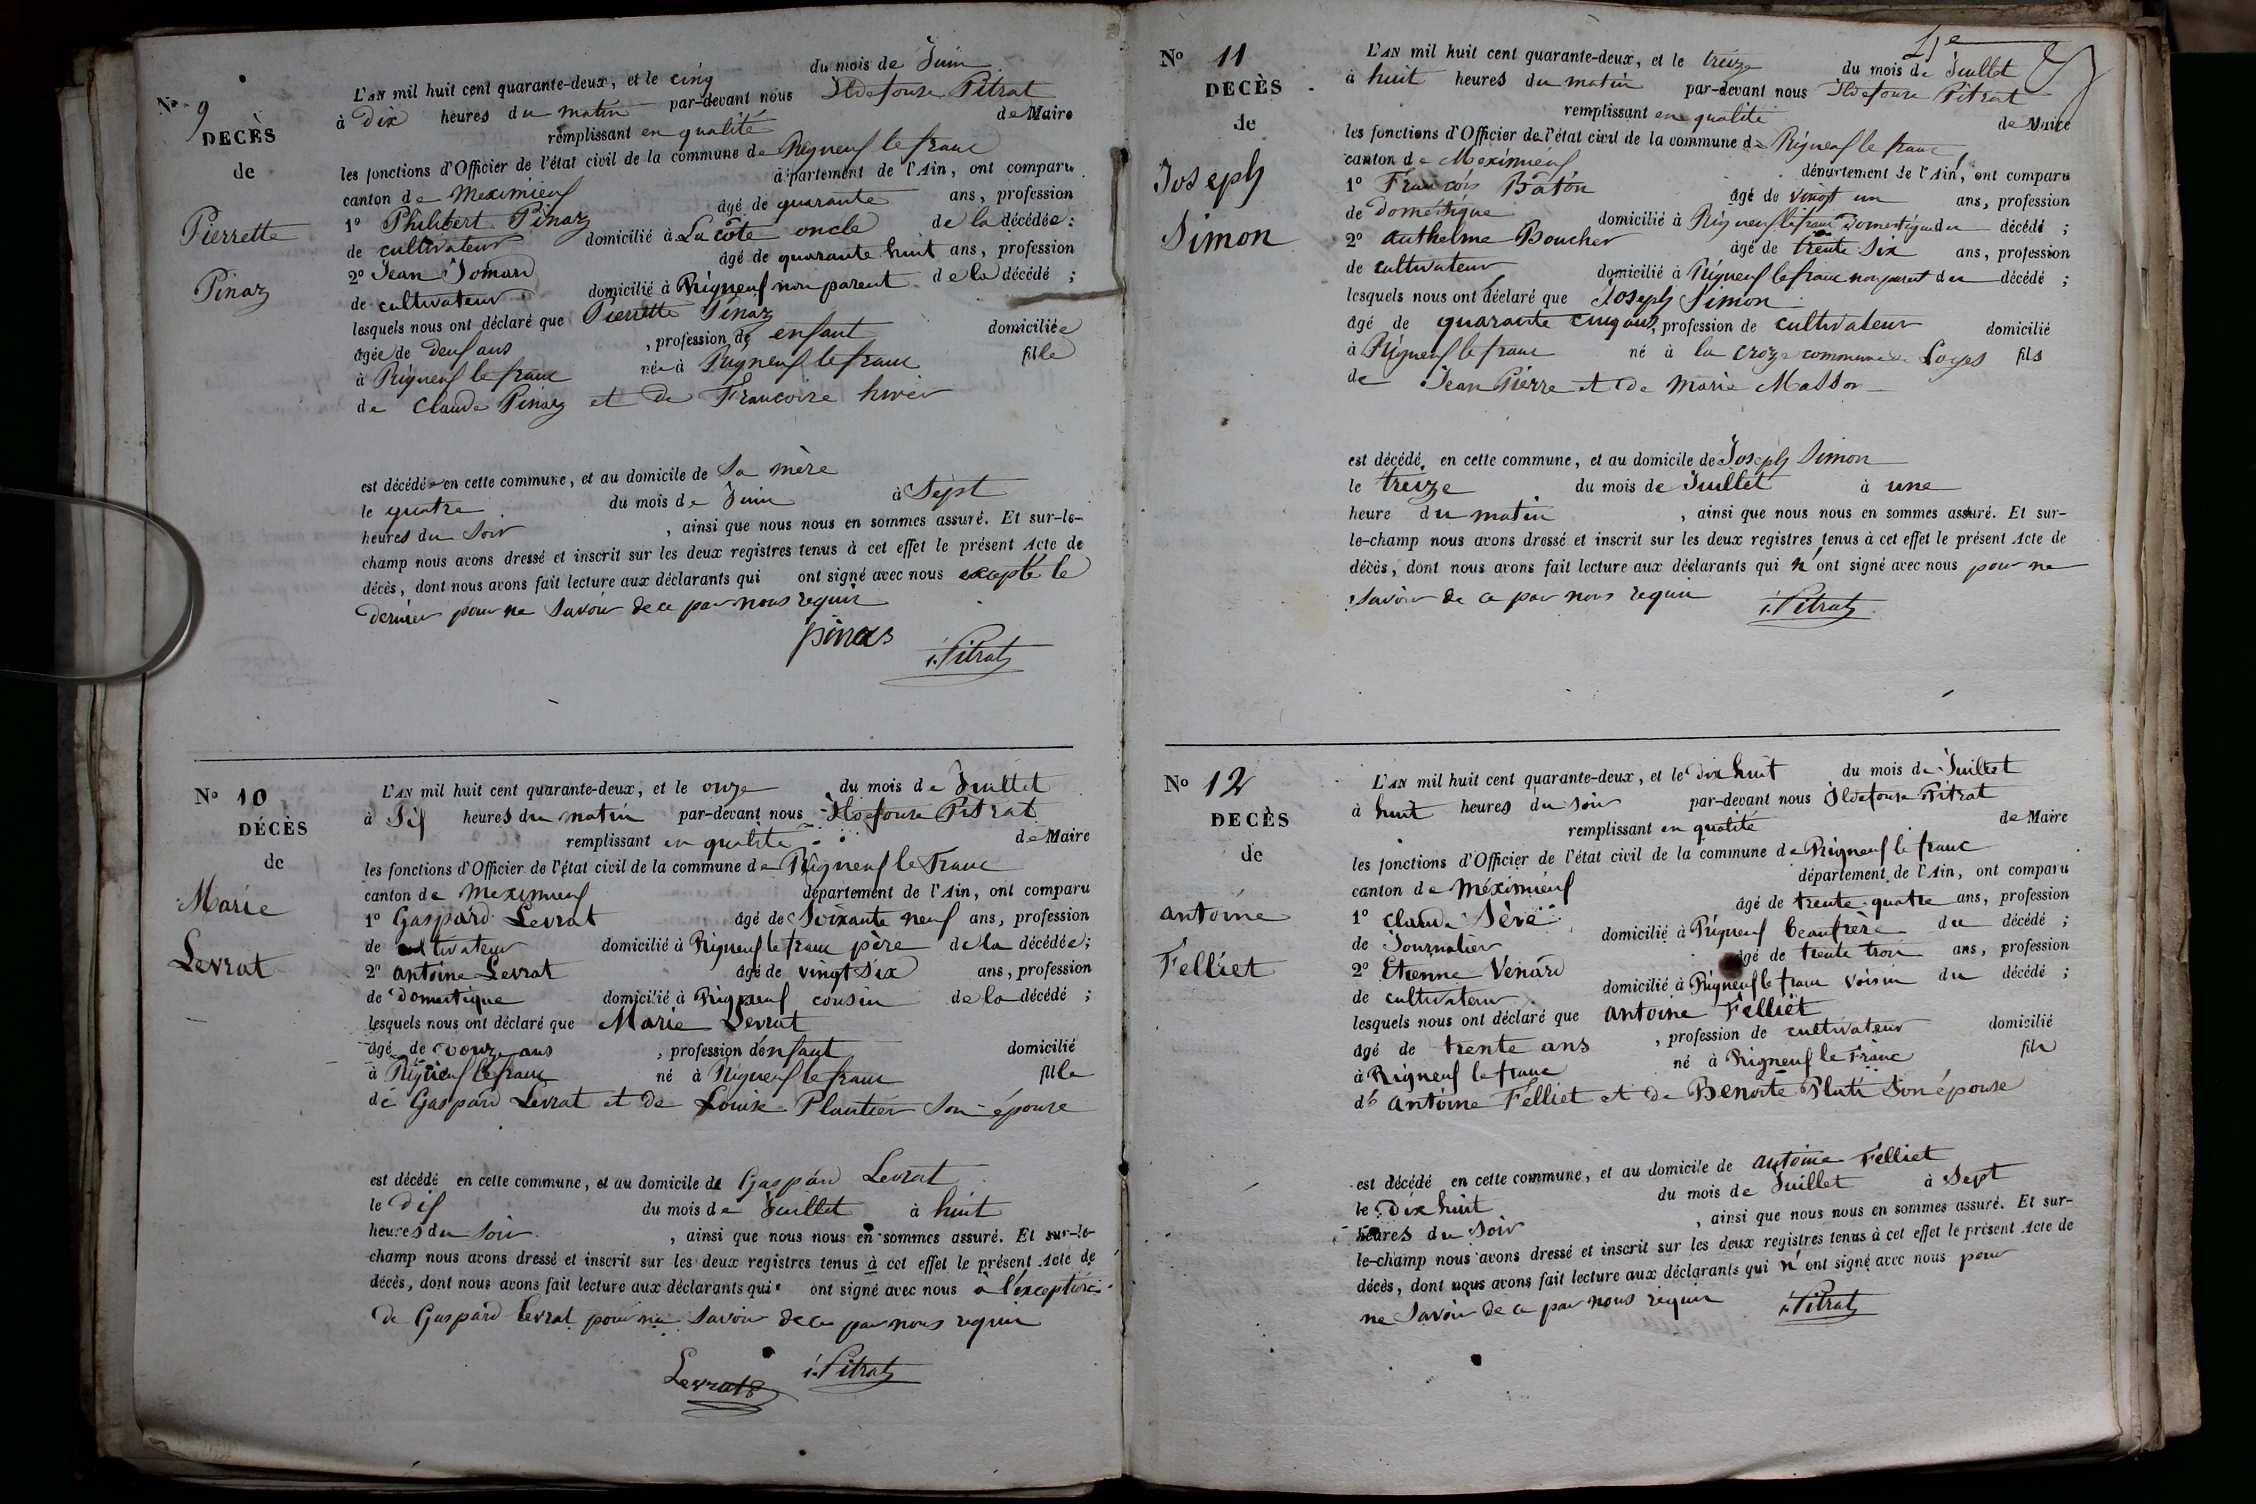 No 9
DECÈS
de
Pierrette
Pinaz
L'AN mil huit cent quarante-deux, et le cinq du mois de Juin
à dix heures du matin par-devant nous Ildefonse Pitrat
remplissant en qualité de Maire
les fonctions d'Officier de l'état civil de la commune de Rigneuf le franc
canton de Meximieuf département de l'Ain, ont comparu
1o Philibert Pinaz âgé de quarante ans, profession
de cultivateur domicilié à La côte oncle de la décédée ;
2o Jean Jomard âgé de quarante huit ans, profession
de cultivateur domicilié à Rigneuf non parent de la décédé ;
lesquels nous ont déclaré que Pierrette Pinaz
âgée de deuf ans , profession de enfant domiciliée
à Rigneuf le franc née à Rigneuf le franc fille
de Claude Pinaz et de Francoise hiver
est décédée en cette commune, et au domicile de sa mère
le quatre du mois de Juin à Sept
heures du soir , ainsi que nous nous en sommes assuré. Et sur-le-
champ nous avons dressé et inscrit sur les deux registres tenus à cet effet le présent Acte de
décès, dont nous avons fait lecture aux déclarants qui ont signé avec nous excepté le
dernier pour ne savoir de ce par nous requis
pinas
i. Pitrat
No 10
DÉCÈS
de
Marie
Levrat
L'AN mil huit cent quarante-deux, et le onze du mois de Juillet
à Sif heures du matin par-devant nous Ildefonse Pitrat
remplissant en qualité de Maire
les fonctions d'Officier de l'état civil de la commune de Rigneuf le Franc
canton de Meximieuf département de l'Ain, ont comparu
1o Gaspard Levrat âgé de Soixante neuf ans, profession
de cultivateur domicilié à Rigneuf le franc père de la décédée ;
2o antoine Levrat âgé de vingt six ans, profession
de domestique domicilié à Rigneuf cousin de la décédé ;
lesquels nous ont déclaré que Marie Levrat
âgé de douze ans , profession d'enfant domicilié
à Rigneuf le franc né à Rigneuf le franc fille
de Gaspard Levrat et de Louise Plantier son épouse
est décédé en cette commune, et au domicile de Gaspard Levrat
le dif du mois de Juillet à huit
heures du soir , ainsi que nous nous en sommes assuré. Et sur-le-
champ nous avons dressé et inscrit sur les deux registres tenus à cet effet le présent Acte de
décès, dont nous avons fait lecture aux déclarants qui ont signé avec nous à l'exception
de Gaspard Levrat pour ne savoir de ce par nous requis
Levrat
i. Pitrat
No 11
DECÈS
de
Joseph
Simon
L'AN mil huit cent quarante-deux, et le treize du mois de Juillet
à huit heures du matin par-devant nous Ildefonse Pitrat
remplissant en qualité de Maire
les fonctions d'Officier de l'état civil de la commune de Rigneuf le franc
canton de Meximieuf département de l'Ain, ont comparu
1o François Baton âgé de vingt un ans, profession
de domestique domicilié à Rigneuf le franc domestique du décédé ;
2o anthelme Boucher âgé de trente six ans, profession
de cultivateur domicilié à Rigneuf le franc non parent du décédé ;
lesquels nous ont déclaré que Joseph Simon
âgé de quarante cinq ans, profession de cultivateur domicilié
à Rigneuf le franc né à la croze commune de Loyes fils
de Jean Pierre et de Marie Masson
est décédé, en cette commune, et au domicile de Joseph Simon
le treize du mois de Juillet à une
heure du matin , ainsi que nous nous en sommes assuré. Et sur-
le-champ nous avons dressé et inscrit sur les deux registres tenus à cet effet le présent Acte de
décès, dont nous avons fait lecture aux déclarants qui n'ont signé avec nous pour ne
savoir de ce par nous requis
i. Pitrat
No 12
DECÈS
de
antoine
Felliet
L'AN mil huit cent quarante-deux, et le dix huit du mois de Juillet
à huit heures du soir par-devant nous Ildefonse Pitrat
remplissant en qualité de Maire
les fonctions d'Officier de l'état civil de la commune de Rigneuf le franc
canton de Méximieuf département de l'Ain, ont comparu
1o claude Sève âgé de trente quatre ans, profession
de Journalier domicilié à Rigneuf beaufrère du décédé ;
2o Etienne Venard âgé de trente trois ans, profession
de cultivateur domicilié à Rigneuf le franc voisin du décédé ;
lesquels nous ont déclaré que antoine Felliet
âgé de trente ans , profession de cultivateur domicilié
à Rigneuf le franc né à Rigneuf le Franc fils
de antoine Felliet et de Benoite son épouse
est décédé en cette commune, et au domicile de antoine Felliet
le dix huit du mois de Juillet à Sept
heures du soir , ainsi que nous nous en sommes assuré. Et sur-
le-champ nous avons dressé et inscrit sur les deux registres tenus à cet effet le présent Acte de
décès, dont nous avons fait lecture aux déclarants qui n'ont signé avec nous pour
ne savoir de ce par nous requis
i. Pitrat